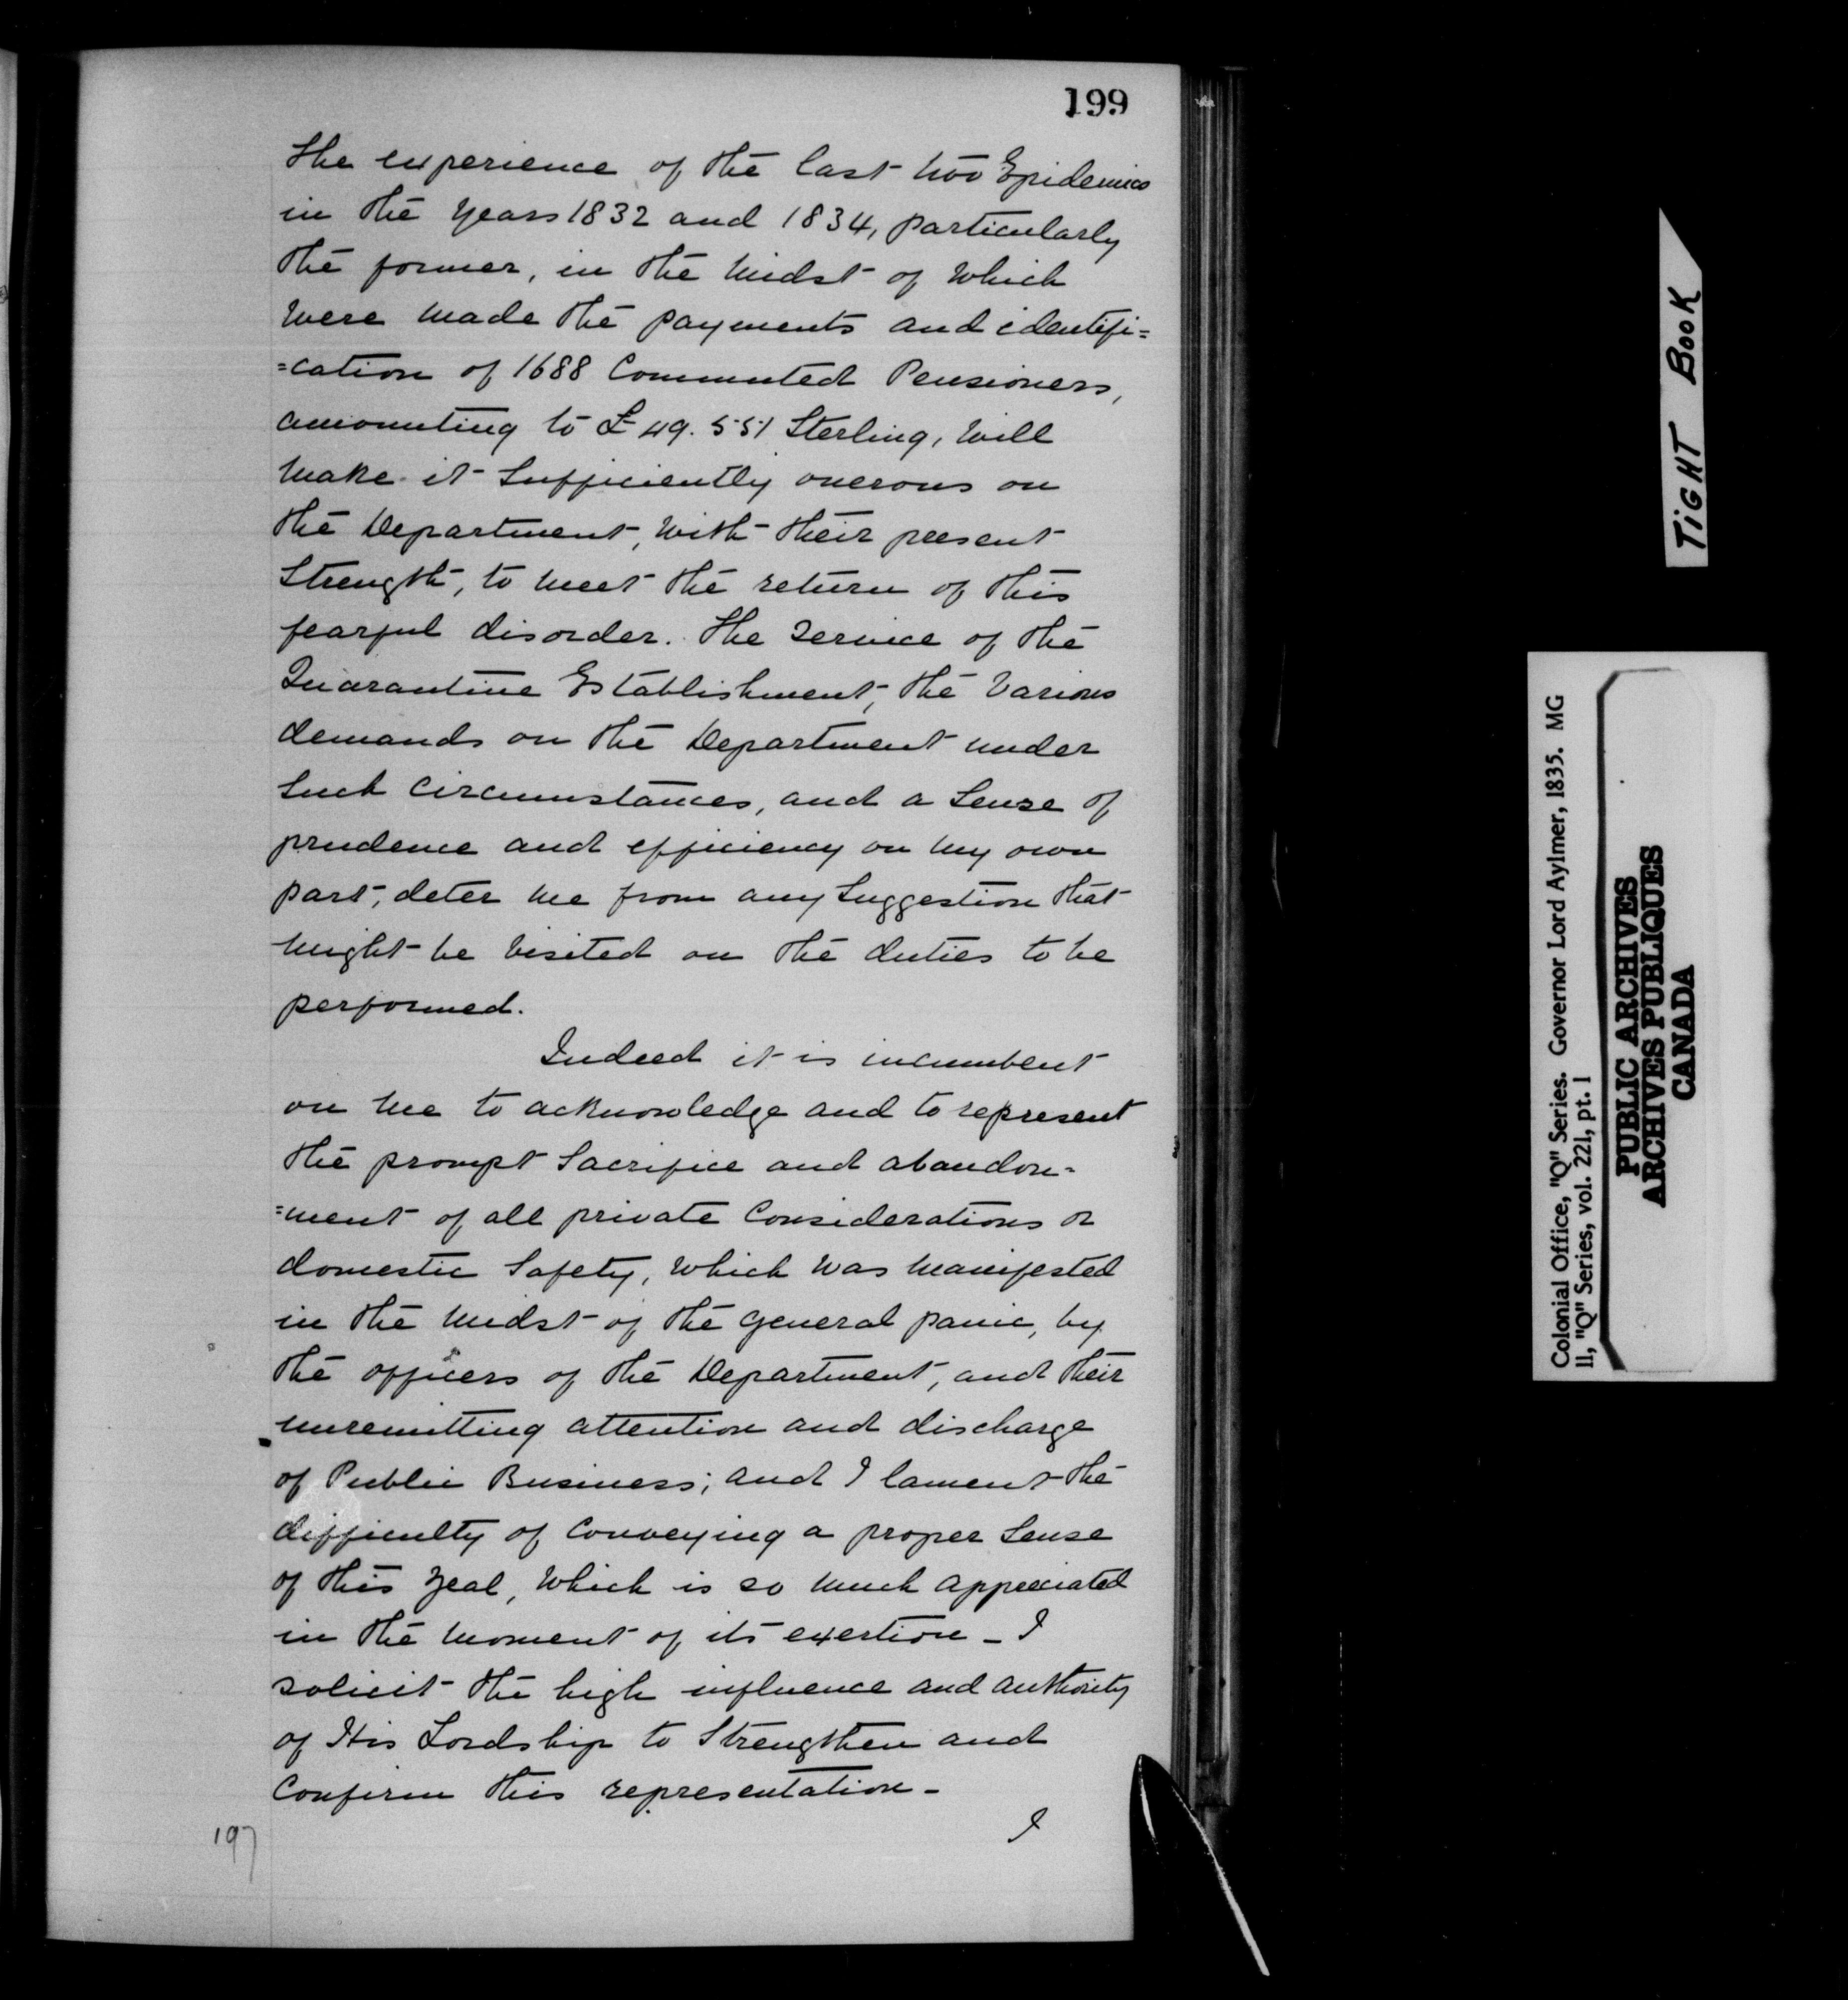 199
The experience of the last two Epidemics
in the Years 1832 and 1834, particularly
the former, in the midst of which
were made the payments and identifi=
=cation of 1688 Commuted Pensioners,
amounting to £49.551 Sterling, will
make it sufficiently onerous on
the Department, with their present
Strength, to meet the return of this
fearful disorder. The service of the
Quarantine Establishment, the various
demands on the Department under
such circumstances, and a sense of
prudence and efficiency on my own
part, deter me from any suggestion that
might be visited on the duties to be
performed.
Indeed it is incumbent
on me to acknowledge and to represent
the prompt sacrifice and abandon=
=ment of all private considerations or
domestic safety, which was manifested
in the midst of the general panic, by
the officers of the Department, and their
unremitting attention and discharge
of Public Business; and I lament the
difficulty of conveying a proper sense
of this zeal, which is so much appreciated
in the moment of its exertion – I
solicit the high influence and authority
of His Lordship to strengthen and
confirm this representation –
I
197
TIGHT BOOK
Colonial Office, "Q" Series. Governor Lord Aylmer, 1835. MG
11, "Q" Series, vol. 221, pt. 1
PUBLIC ARCHIVES
ARCHIVES PUBLIQUES
CANADA